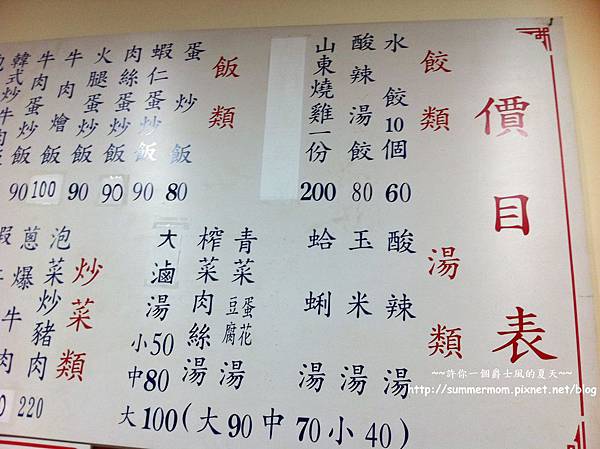 價目表
餃類
水餃10個 60
酸辣湯餃 80
山東燒雞一份 200
飯類
蛋炒飯 80
蝦仁蛋炒飯 90
肉絲蛋炒飯 90
火腿蛋炒飯 90
牛肉燴飯 100
牛肉蛋炒飯 90
韓式炒牛肉飯
湯類
酸辣湯
玉米湯
蛤蜊湯
青菜蛋花豆腐湯
榨菜肉絲湯
(大90中70小40)
大滷湯
小50
中80
大100
炒菜類
泡菜炒豬肉 220
蔥爆牛肉
~~許你一個爵士風的夏天~~
http://summermom.pixnet.net/blog